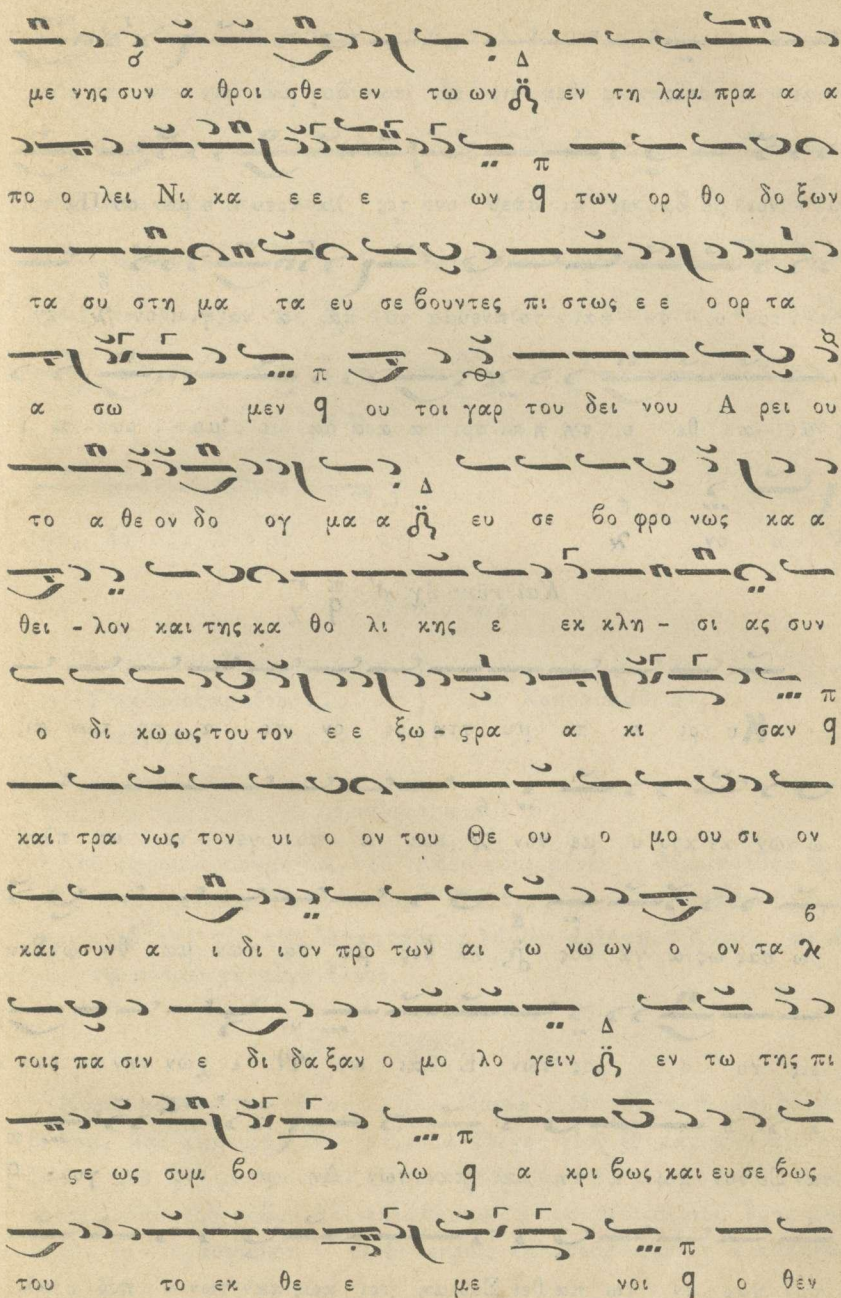 με νης συν α θροι σθε εν τω ων εν τη λαμ πρα α α
πο ο λει Νι κα ε ε ε ων των ορ θο δο ξων
τα συ στη μα τα ευ σε βουντες πι στως ε ε ο ορ τα
α σω μεν ου τοι γαρ του δει νου Α ρει ου
το α θε ον δο ογ μα α ευ σε βο φρο νως κα α
θει - λον και της κα θο λι κης ε εκ κλη - σι ας συν
ο δι κω ως του τον ε ε ξω - ϛρα α κι σαν
και τρα νως τον υι ο ον του Θε ου ο μο ου σι ον
και συν α ι δι ι ον προ των αι ω νω ων ο ον τα
τοις πα σιν ε δι δαξαν ο μο λο γειν εν τω της πι
ϛε ως συμ βο λω α κρι βως και ευ σε βως
του το εκ θε ε με νοι ο θεν